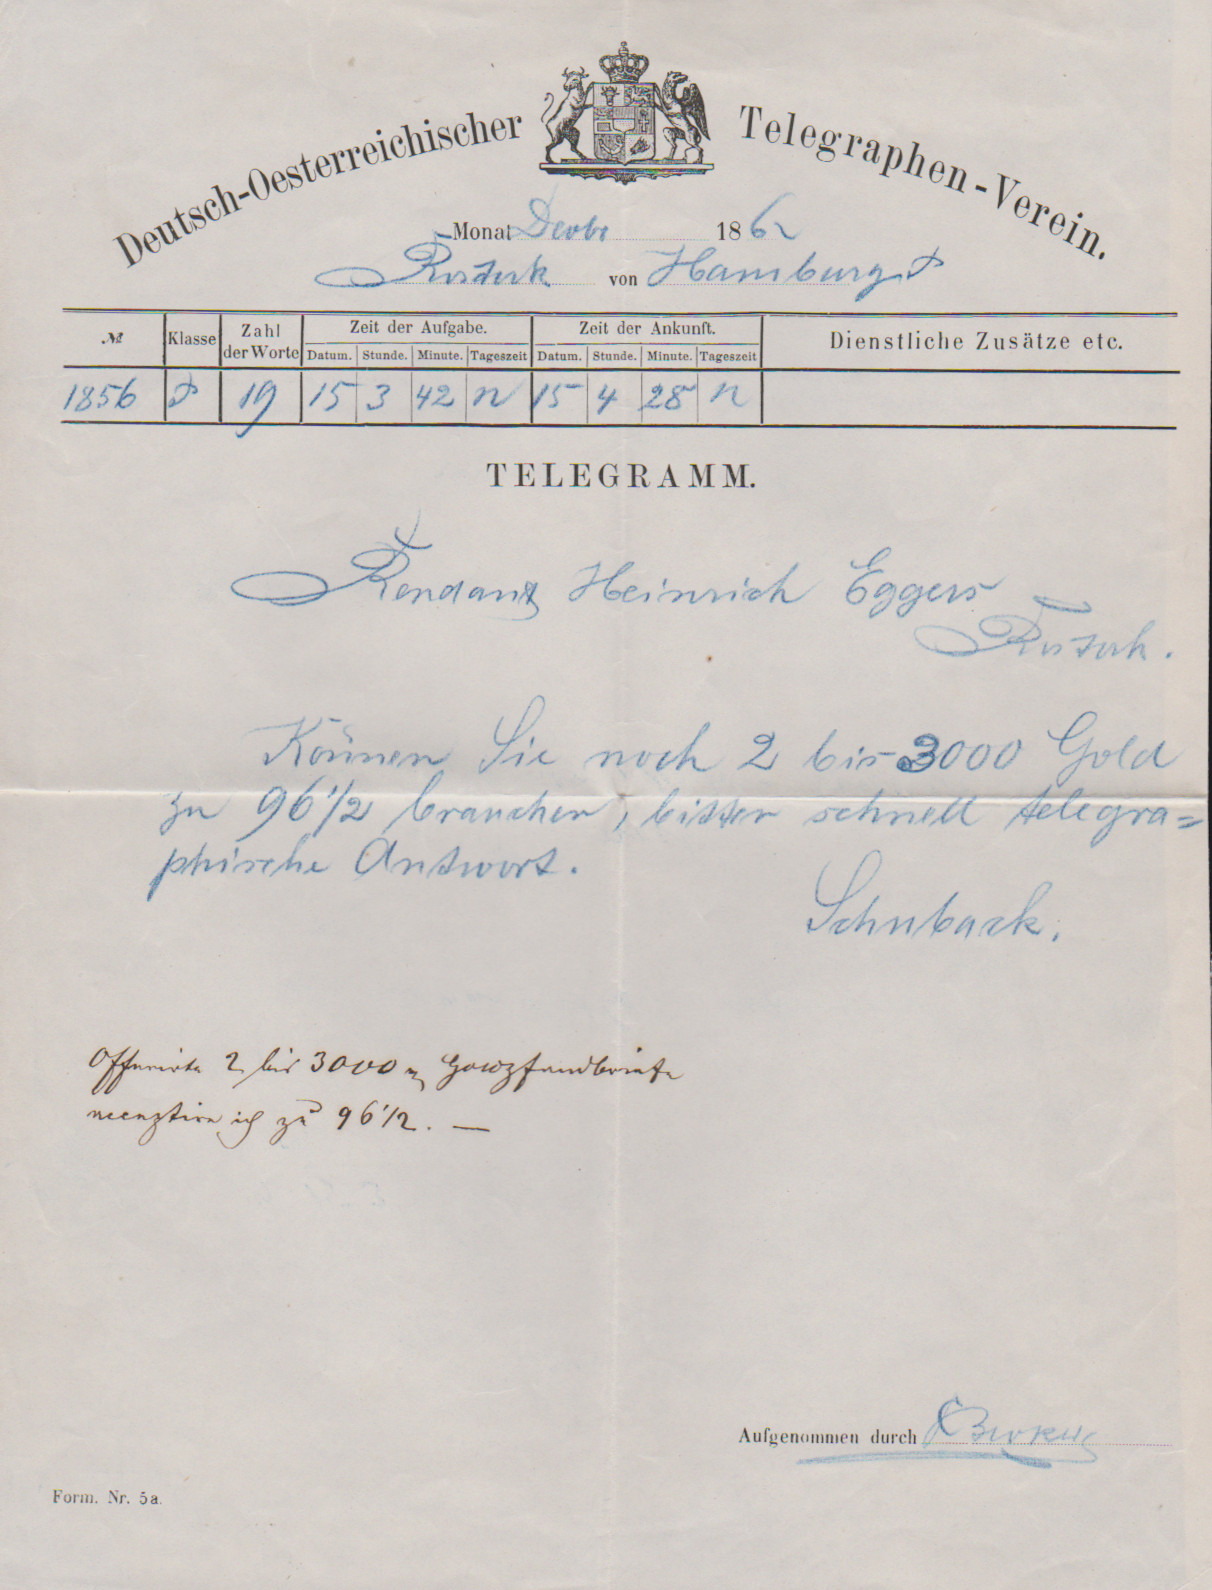 Deutsch-Oesterreichischer Telegraphen-Verein.
Monat Decbr 1862
Rostock von Hamburg
№ Klasse Zahl der Worte Zeit der Aufgabe. Zeit der Ankunft. Dienstliche Zusätze etc.
Datum. Stunde. Minute. Tageszeit Datum. Stunde. Minute. Tageszeit
1856 19 15 3 42 N 15 4 28 N
TELEGRAMM.
Rendant Heinrich Eggers
Rostock.
Können Sie noch 2 bis 3000 Gold
zu 96 1/2 brauchen, bitten schnell telegra=
phische Antwort.
Schuback.
Offerirte 2 bis 3000
ich zu 96 1/2. —
Aufgenommen durch
Form. Nr. 5a.